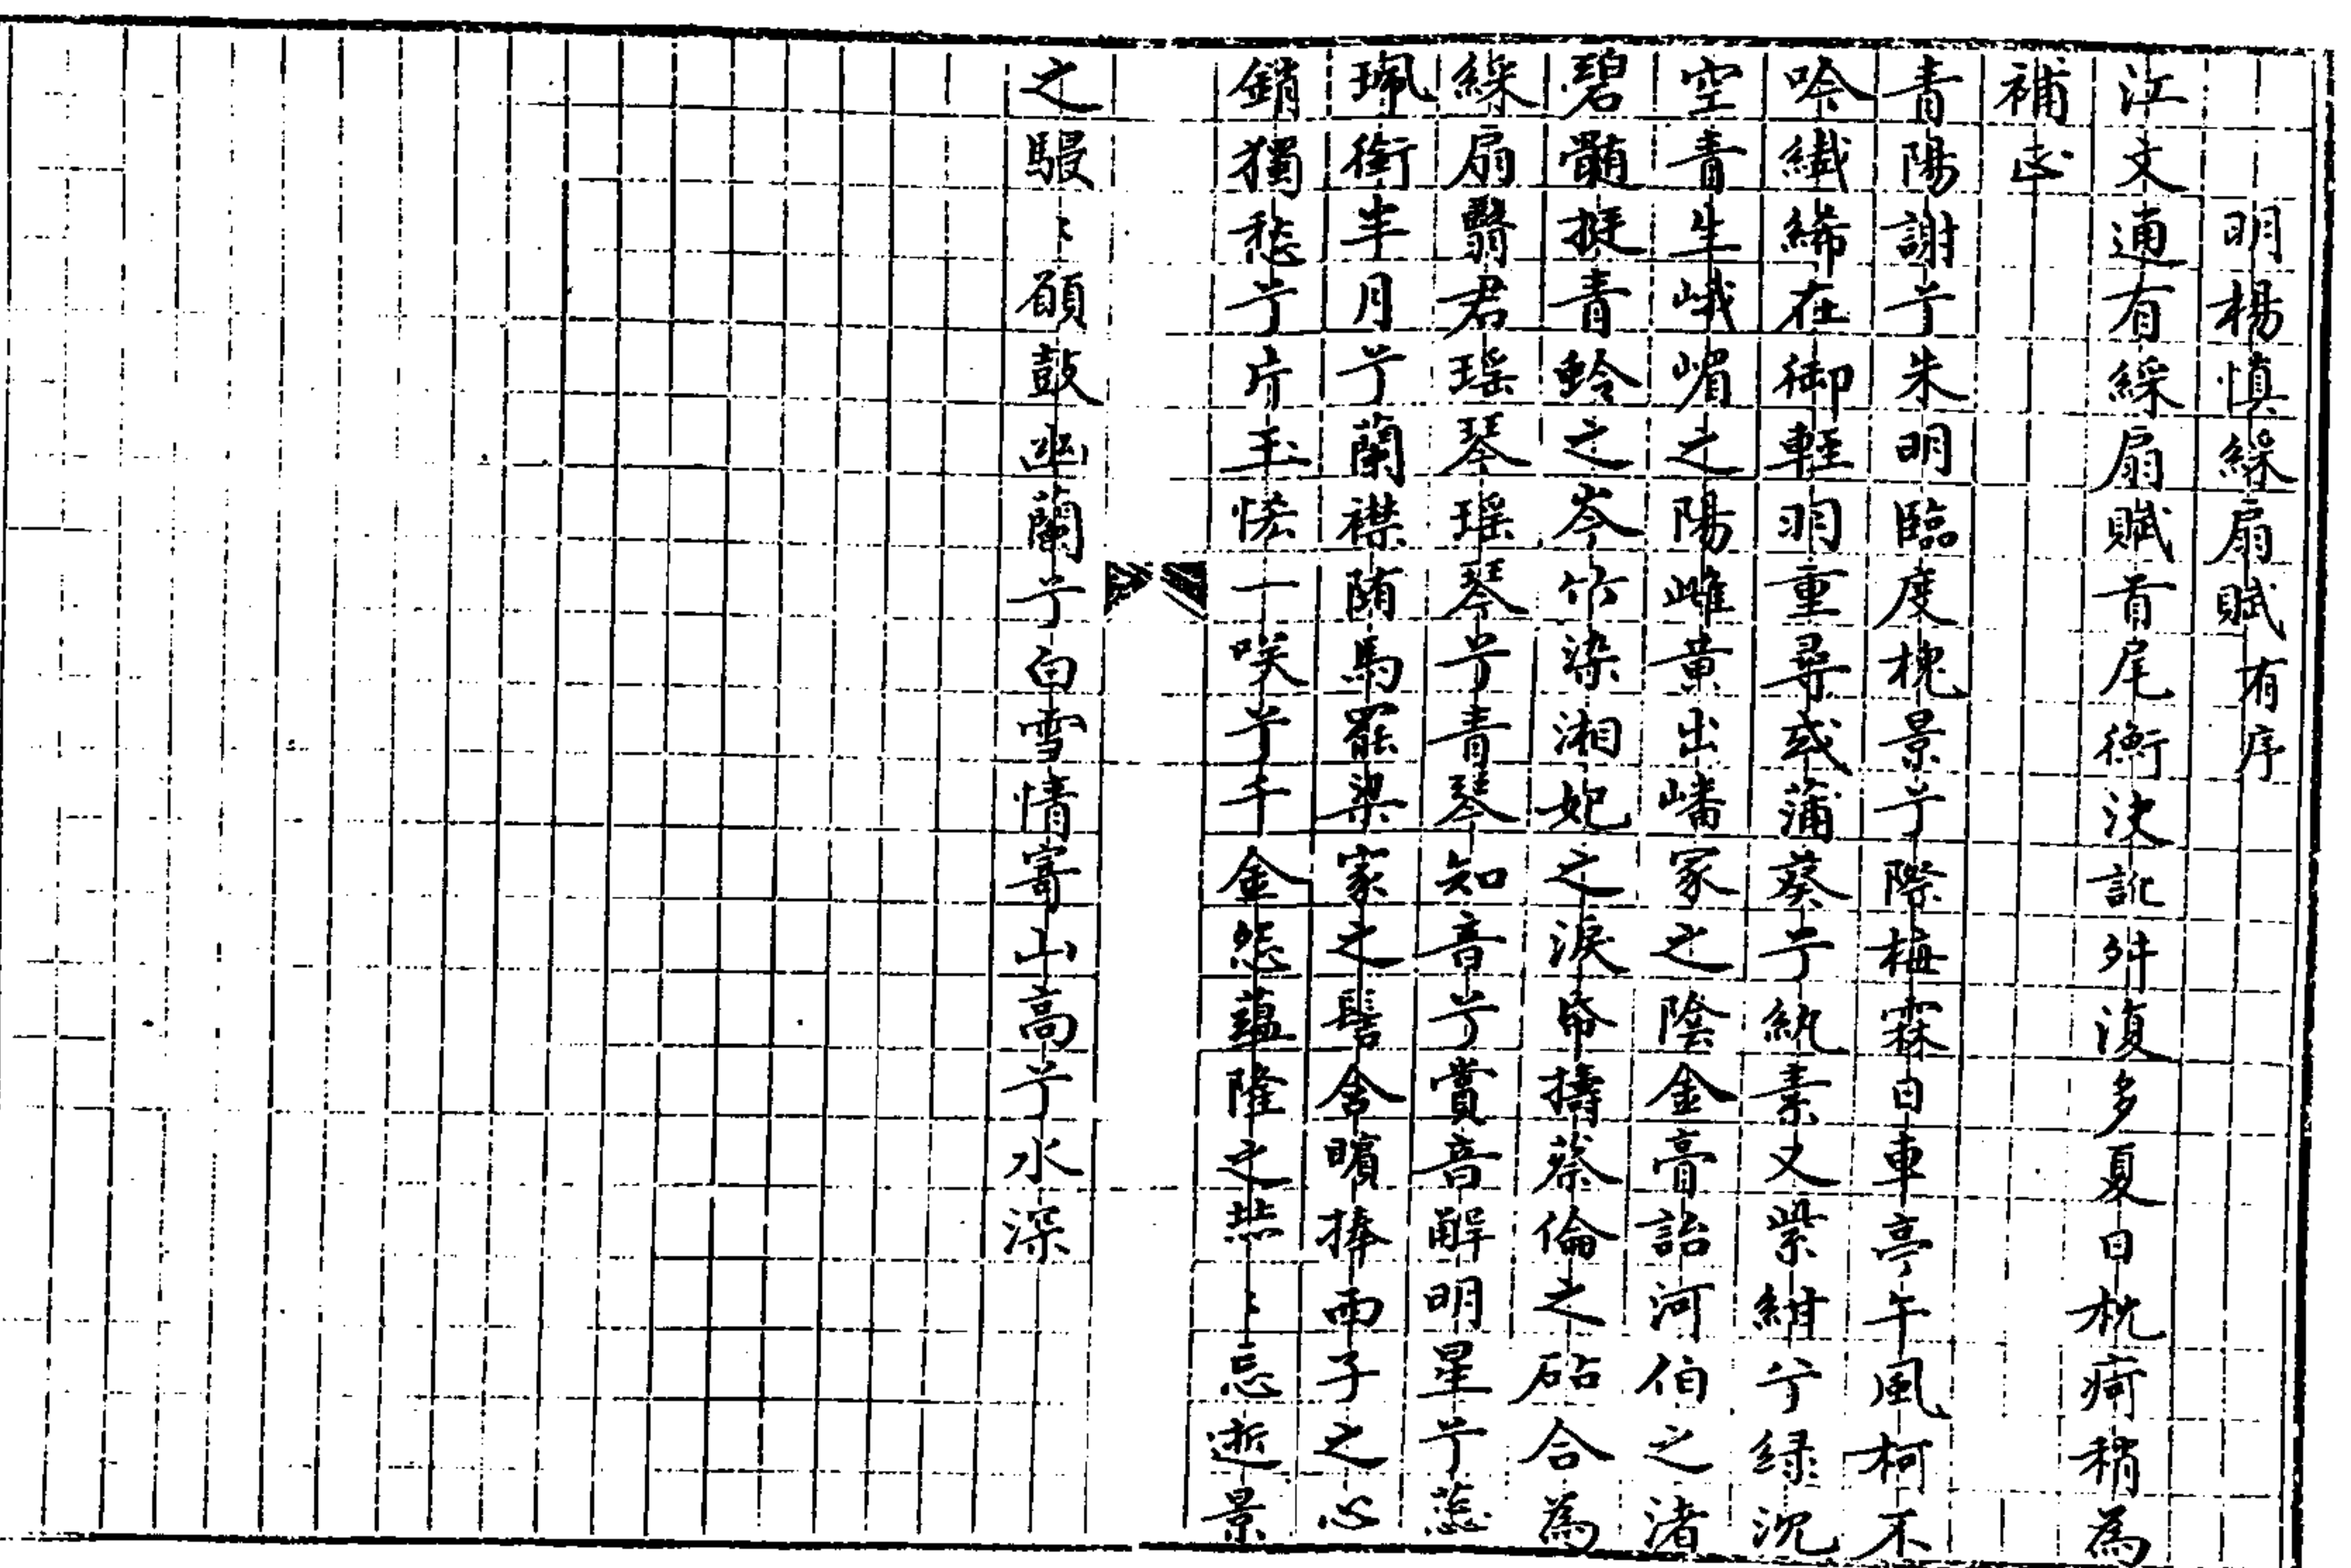 明楊慎綵扇賦有序
江文通有綵扇賦首尾衡決訛舛復多夏日枕疴稍為
補㞢
青陽謝兮朱明臨度槐景兮際梅霖日車亭午風柯不
吟纖絺在御輕羽重尋或蒲葵兮紈素又紫紺兮綠沉
空青生峨嵋之陽雌黃出嶓冢之陰金膏詒河伯之渚
碧髓挺青蛉之岑竹染湘妃之淚帋擣蔡倫之砧合為
綵扇翳君瑶琴瑶琴兮青琴知音兮賞音解明星兮蕊
珮銜半月兮蘭襟随馬罷梁家之髻含矉捧西子之心
銷獨愁兮片玉恡一咲兮千金怨蘊隆之恭〻忘逝景
之駸〻願鼓幽蘭兮白雪情寄山高兮水深